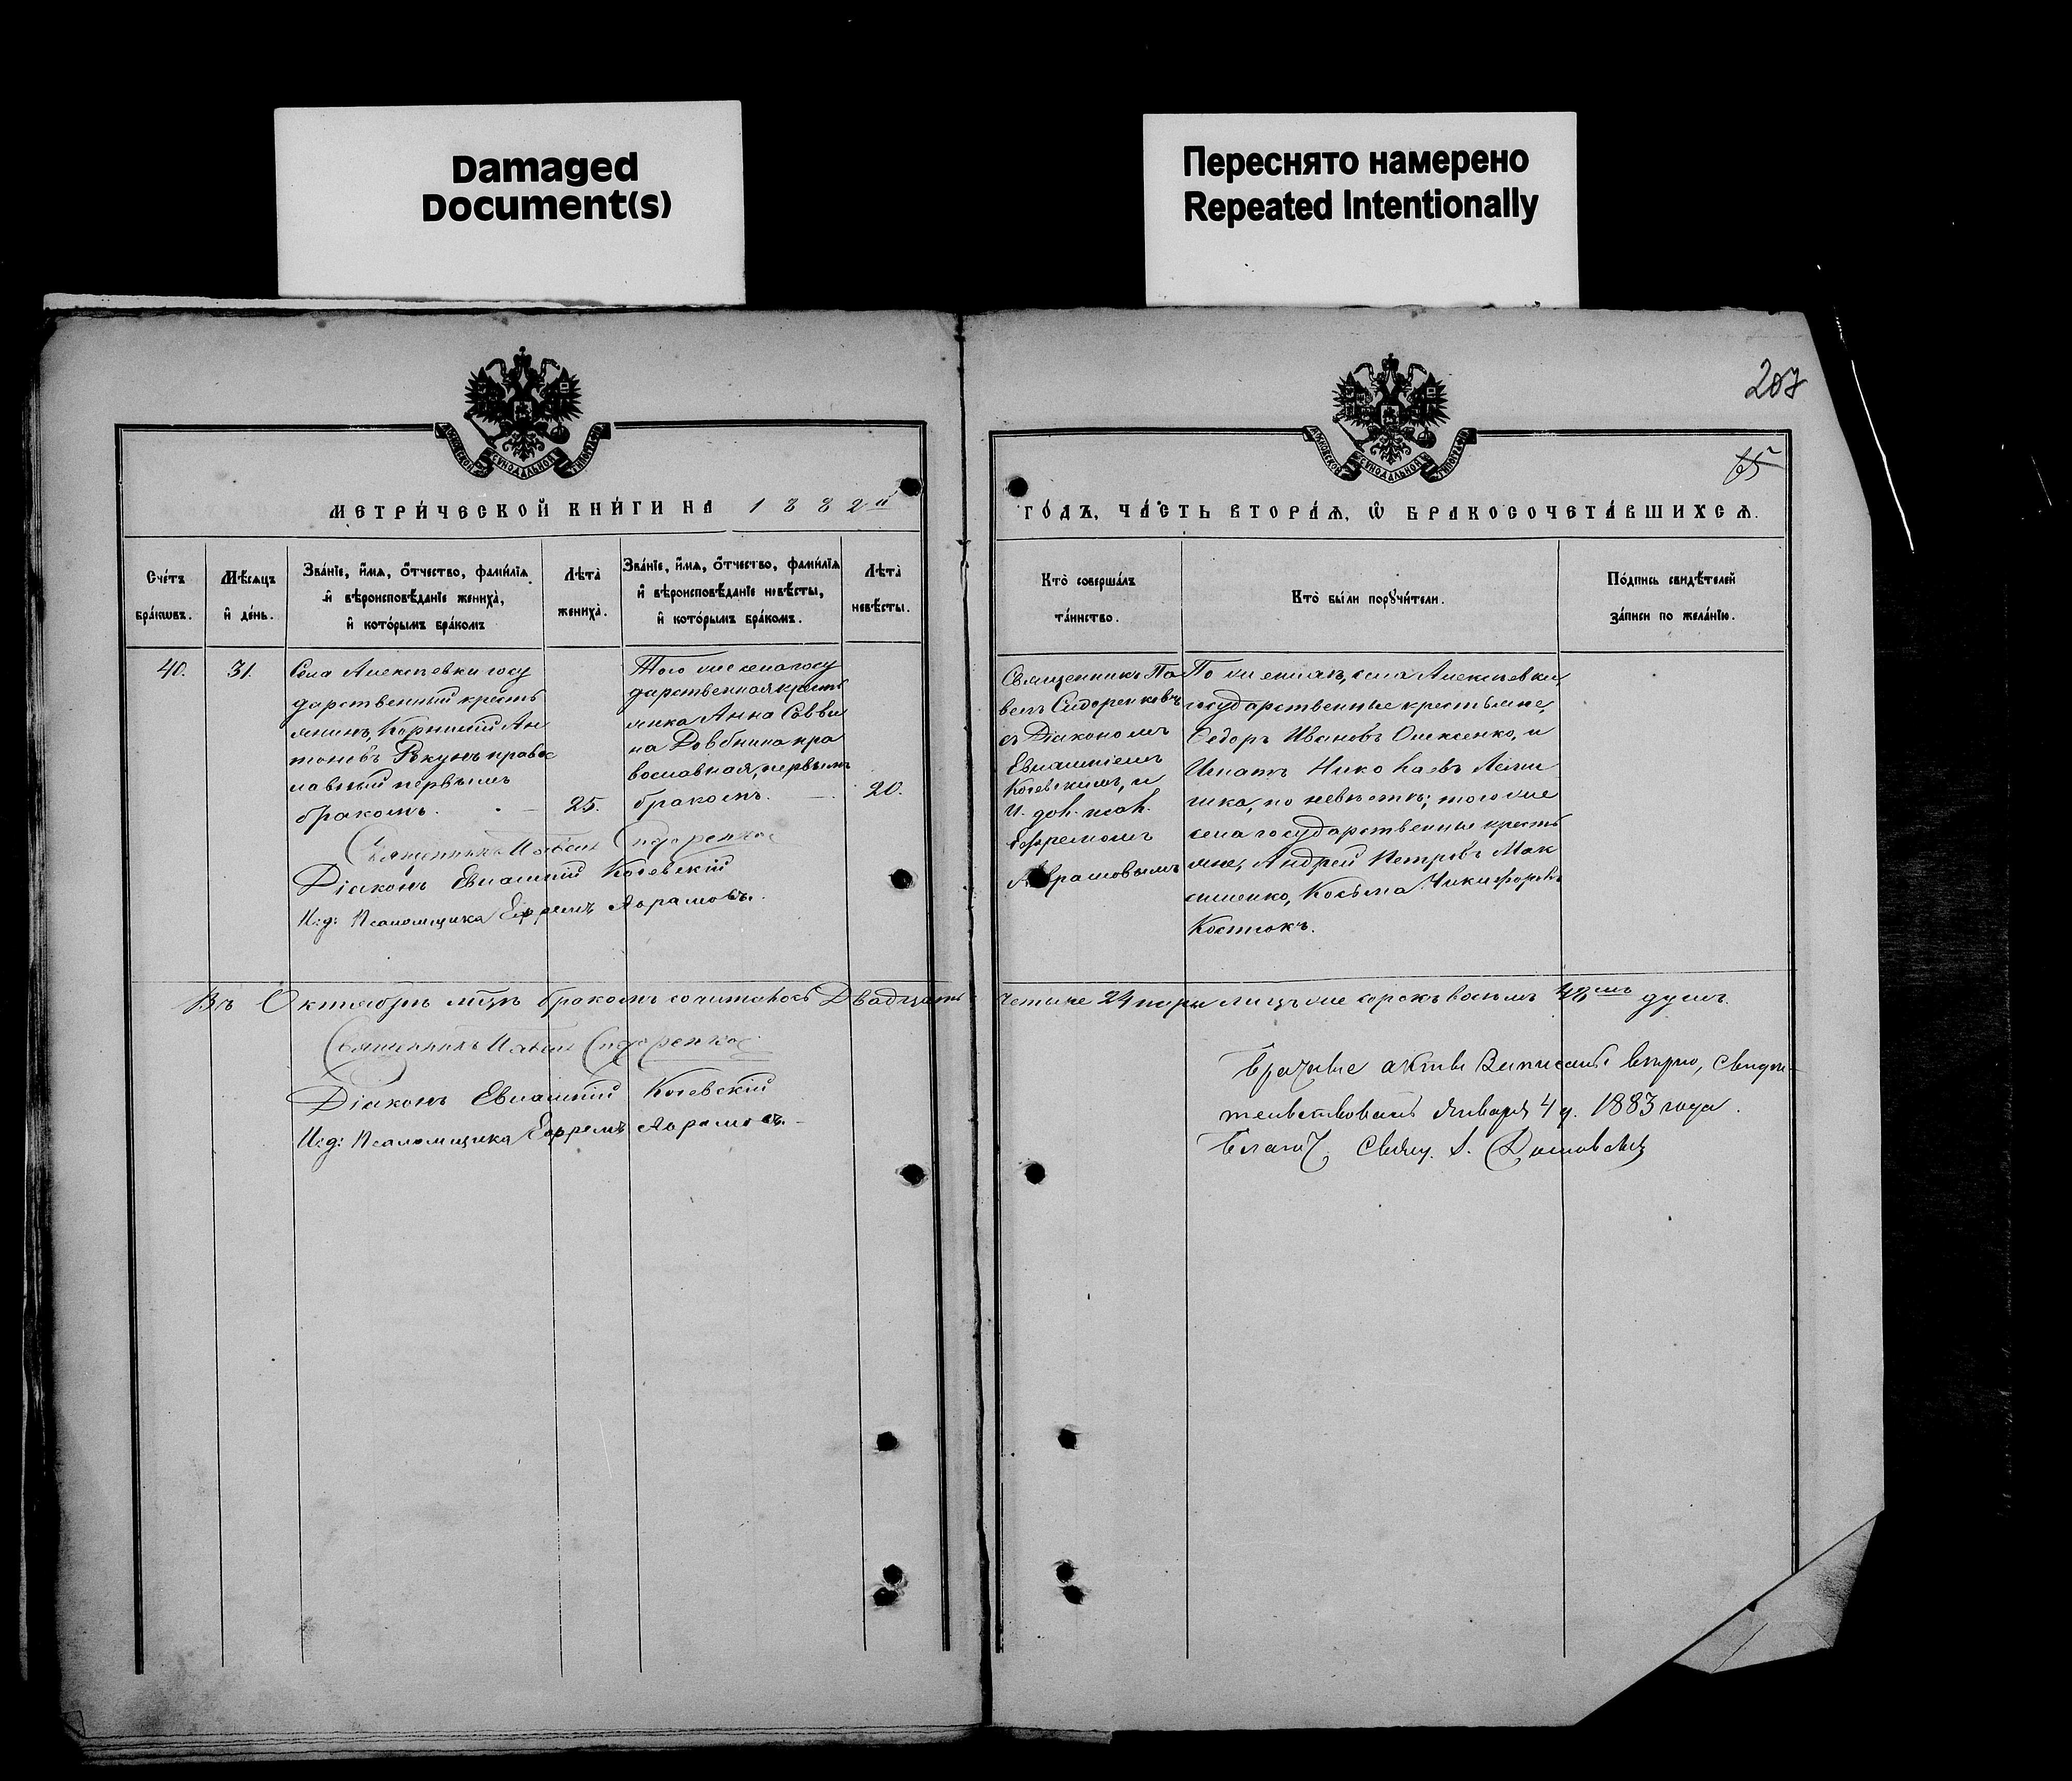 Damaged
Document(s)
Переснято намерено
Repeated Intentionally
207
65
МОСКОВСКОЙ СѴНОДАЛЬНОЙ ТИПОГРАФІИ
МОСКОВСКОЙ СѴНОДАЛЬНОЙ ТИПОГРАФІИ
МЕТРИ́ЧЕСКОЙ КНИ́ГИ НА 1882й
ГО́ДЪ, ЧА́СТЬ ВТОРА́Ѧ, Ѡ БРАКОСОЧЕТА́ВШИХСѦ.
Сче́тъ
бра́кѡвъ.
Мѣ́сѧцъ
и҆ де́нь.
Зва́нїе, и҆́мѧ, ѻ҆́тчество, фами́лїѧ
и҆ вѣроисповѣ́данїе жениха̀,
и҆ кото́рымъ бра́комъ
Лѣта̀
жениха̀.
Зва́нїе, и҆́мѧ, ѻ҆́тчество, фами́лїѧ
и҆ вѣроисповѣ́данїе невѣ́сты,
и҆ кото́рымъ бра́комъ.
Лѣта̀
невѣ́сты.
Кто̀ соверша́лъ
та́инство.
Кто̀ бы́ли порꙋчи́тели.
По́дпись свидѣ́телей
за́писи по жела́нїю.
40.
31.
Села Алексѣевки госу
дарственный кресть
янинъ, Корнилій Ан
тоновъ Рекунъ правос
лавный первымъ
бракомъ.
25.
Того же села госу
дарственная кресть
янка Анна Савви
на Довбнина пра
вославная, первымъ
бракомъ.
20.
Священникъ Па
велъ Сидоренковъ
съ Діакономъ
Евлампіемъ
Котевскимъ, и
И. дол. псал.
Ефремомъ
Аврамовымъ
По женихѣ, села Алексѣевки,
государственные крестьяне,
Ѳедоръ Ивановъ Олексенко, и
Игнатъ Николаевъ
по невѣстѣ; того же
села государственные кресть
яне, Андрей Петровъ Мак
сименко, Косьма Никифоровъ
Костюкъ.
Священникъ Павелъ Сидоренковъ
Діаконъ Евлампій Котевскій
И: д: Псаломщика Ефремъ Аврамовъ.
Въ Октябрѣ мцѣ бракомъ сочиталось Двадцать четыре 24 пары лицъ же сорокъ восемь 48мь душъ.
Священникъ Павелъ Сидоренковъ
Діаконъ Евлампій Котевскій
И: д: Псаломщика Ефремъ Аврамовъ.
Брачные акты Выписаны вѣрно, свидѣ-
тельствовалъ Января 4 д. 1883 года.
Благоч. Свящ.